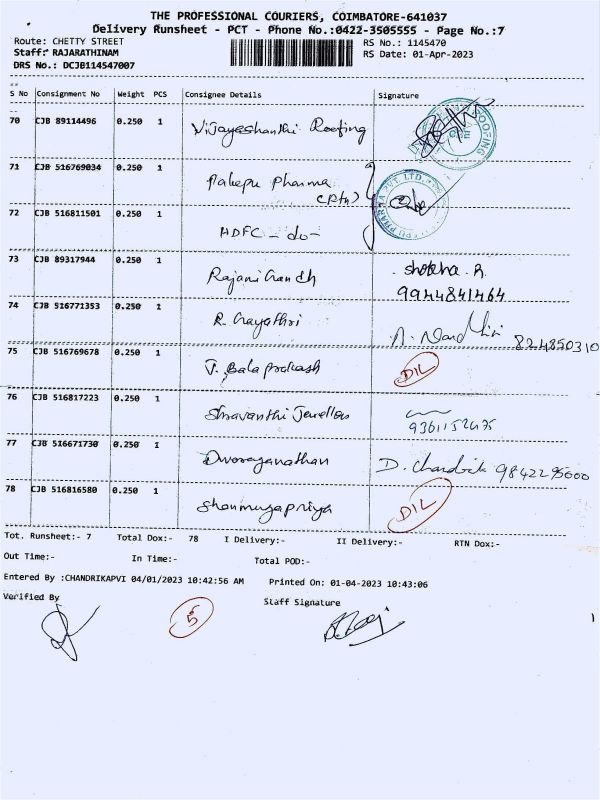 THE PROFESSIONAL COURIERS, COIMBATORE-641037
Delivery Runsheet - PCT - Phone No.:0422-3505555 - Page No.:7
Route: CHETTY STREET RS No.: 1145470
Staff: RAJARATHINAM RS Date: 01-Apr-2023
DRS No.: DCJB114547007
S No Consignment No Weight PCS Consignee Details Signature
70 CJB 89114496 0.250 1 Vijayeshanthi Roofing
71 CJB 516769034 0.250 1 Pharma
72 CJB 516811501 0.250 1 HDFC - do -
73 CJB 89317944 0.250 1 Rajani Gandh Shobha R.
9944841464
74 CJB 516771353 0.250 1 R. Gayathri 824850310
75 CJB 516769678 0.250 1 J. Bala Prakash DIL
76 CJB 516817223 0.250 1 Shravanthi Jewellers
77 CJB 516671730 0.250 1 Dworaganathan D. Chandrik 9842295000
78 CJB 516816580 0.250 1 Shanmugapriya DIL
Tot. Runsheet:- 7 Total Dox:- 78 I Delivery:- II Delivery:- RTN Dox:-
Out Time:- In Time:- Total POD:-
Entered By :CHANDRIKAPVI 04/01/2023 10:42:56 AM Printed On: 01-04-2023 10:43:06
Verified By Staff Signature
5